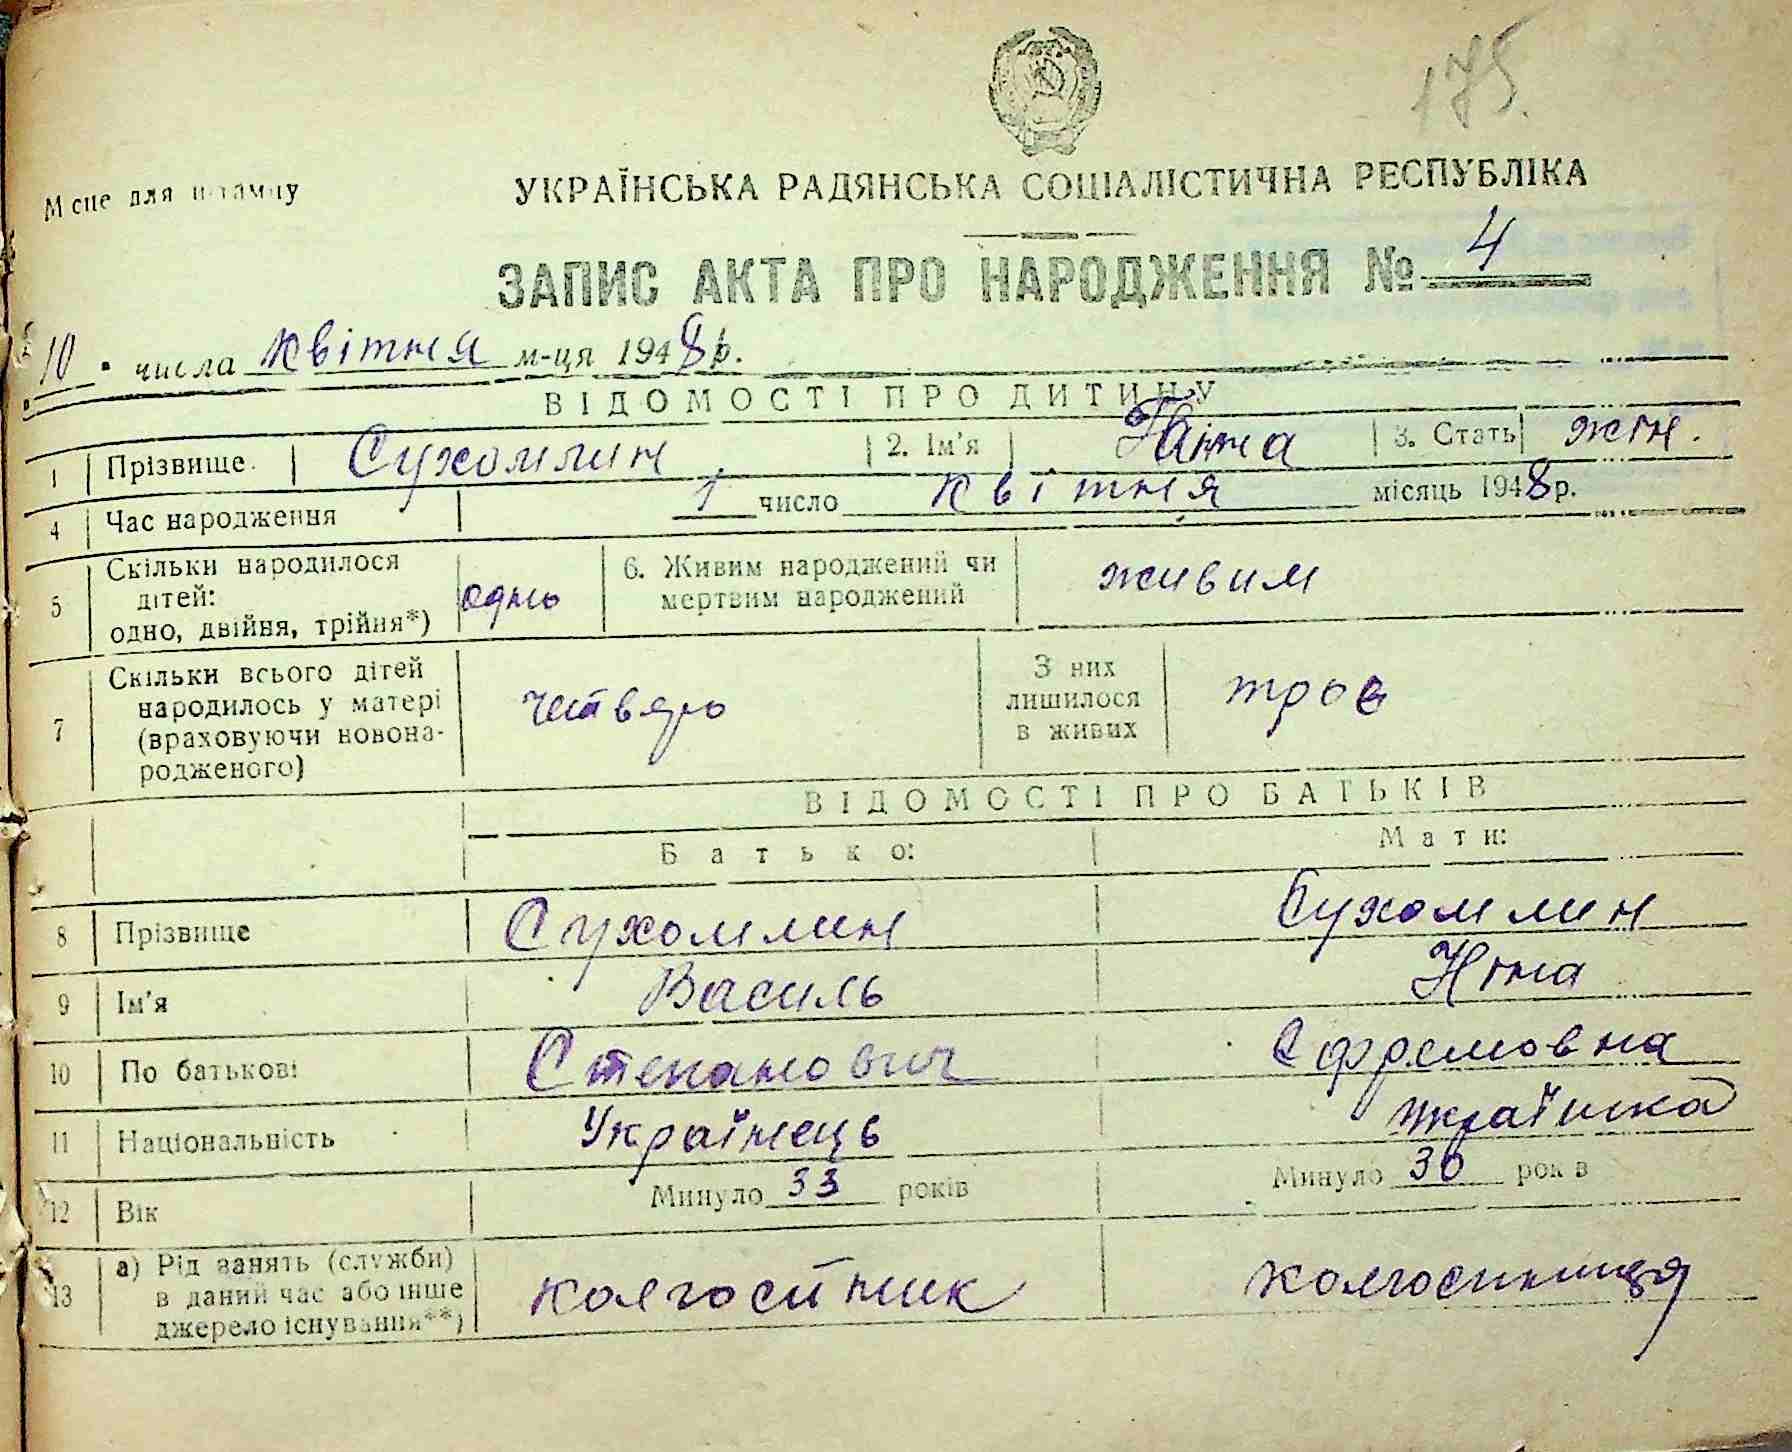 175.
Місце для штампу
УКРАЇНСЬКА РАДЯНСЬКА СОЦІАЛІСТИЧНА РЕСПУБЛІКА
ЗАПИС АКТА ПРО НАРОДЖЕННЯ № 4
10 числа квітня м-ця 1948 р.
ВІДОМОСТІ ПРО ДИТИНУ
1 Прізвище Сухомлин 2. Ім'я Ганна 3. Стать жін.
4 Час народження 1 число квітня місяць 1948 р.
5 Скільки народилося дітей: одно, двійня, трійня*) одно 6. Живим народжений чи мертвим народжений живим
7 Скільки всього дітей народилось у матері (враховуючи новонародженого) четверо З них лишилося в живих троє
ВІДОМОСТІ ПРО БАТЬКІВ
Батько: Мати:
8 Прізвище Сухомлин Сухомлин
9 Ім'я Василь Ніна
10 По батькові Степанович Єфремовна
11 Національність Українець Українка
12 Вік Минуло 33 років Минуло 30 років
13 а) Рід занять (служби) в даний час або інше джерело існування**) колгоспник колгоспниця